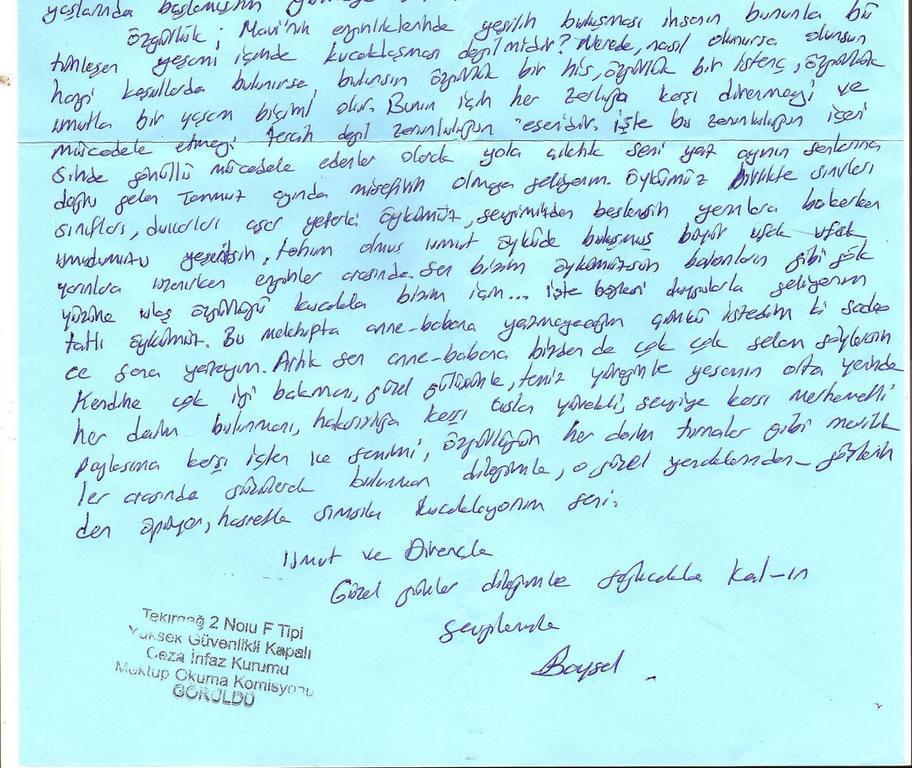 yaşlarında başlamışsın
Özgürlük; Mavi'nin enginliklerinde yeşilin buluşması insanın bununla bü
tünleşen yaşamı içinde kucaklaşması değil midir? Nerede, nasıl olunursa olunsun
hangi koşullarda bulunursa bulunsun özgürlük bir his, özgürlük bir istenç, özgürlük
umutla bir yaşam biçimi olur. Bunun için her zorluğa karşı direnmeyi ve
mücadele etmeyi tercih değil zorunluluğun "eseridir. işte bu zorunluluğun içeri
sinde gönüllü mücadele edenler olarak yola çıktık seni yaz ayının sonlarına
doğru gelen Temmuz ayında misafirin olmaya geliyorum. Öykümüz birlikte sınırları
sınıfları, duvarları aşar yeterki öykümüz, sevgimizden beslensin yarınlara bakarken
umudumuzu yeşertsin, tohum olmuş umut öyküde buluşmuş büyür ufak ufak
yarınlara uzanırken enginler arasında. Sen bizim öykümüzsün balonların gibi gök
yüzüne ulaş özgürlüğü kucakla bizim için... işte böylesi duygularla geliyorum
tatlı öykümüz. Bu mektupta anne-babana yazmayacağım çünkü istedim ki sadec
ce sana yazayım. Artık sen anne-babana bizden de çok çok selam söylersin
Kendine çok iyi bakman, güzel gülüşünle, temiz yüreğinle yaşamın orta yerinde
her daim bulunman, haksızlığa karşı aslan yürekli, sevgiye karşı merhametli
paylaşıma karşı içten ve samimi, özgürlüğün her daim turnalar gibi mavilik
ler arasında süzülerek bulunman dileğimle, o güzel yanaklarından-gözlerin
den öpüyor, hasretle sımsıkı kucaklıyorum seni.
Umut ve Dirençle
Güzel günler dileğimle sağlıcakla kal-ın
Sevgilerimle
Baysal
Tekirdağ 2 Nolu F Tipi
Yüksek Güvenlikli Kapalı
Ceza İnfaz Kurumu
Mektup Okuma Komisyonu
GÖRÜLDÜ